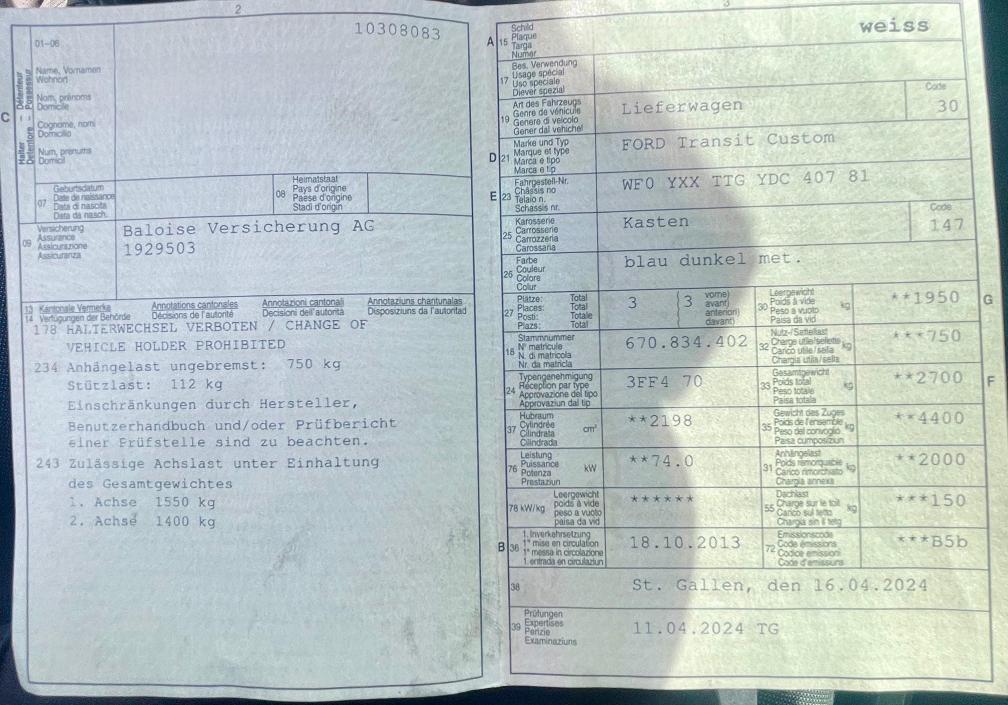 2
10308083
C
Halter – Détenteur
Detentore – Possessur
01-06
Name, Vornamen
Wohnort
Nom, prénoms
Domicile
Cognome, nomi
Domicilio
Num, prenums
Domicil
07
Geburtsdatum
Date de naissance
Data di nascita
Data da nasch.
08
Heimatstaat
Pays d'origine
Paese d'origine
Stadi d'origin
09
Versicherung
Assurance
Assicurazione
Assicuranza
Baloise Versicherung AG
1929503
13 Kantonale Vermerke
14 Verfügungen der Behörde
Annotations cantonales
Décisions de l'autorité
Annotazioni cantonali
Decisioni dell'autorità
Annotaziuns chantunalas
Disposiziuns da l'autoritad
178 HALTERWECHSEL VERBOTEN / CHANGE OF
VEHICLE HOLDER PROHIBITED
234 Anhängelast ungebremst: 750 kg
Stützlast: 112 kg
Einschränkungen durch Hersteller,
Benutzerhandbuch und/oder Prüfbericht
einer Prüfstelle sind zu beachten.
243 Zulässige Achslast unter Einhaltung
des Gesamtgewichtes
1. Achse 1550 kg
2. Achse 1400 kg
3
A 15
Schild
Plaque
Targa
Numer
weiss
17
Bes. Verwendung
Usage spécial
Uso speciale
Diever spezial
19
Art des Fahrzeugs
Genre de véhicule
Genere di veicolo
Gener dal vehichel
Lieferwagen
Code
30
D 21
Marke und Typ
Marque et type
Marca e tipo
Marca e tip
FORD Transit Custom
E 23
Fahrgestell-Nr.
Châssis no
Telaio n.
Schassis nr.
WF0 YXX TTG YDC 407 81
25
Karosserie
Carrosserie
Carrozzeria
Carossaria
Kasten
Code
147
26
Farbe
Couleur
Colore
Colur
blau dunkel met.
27
Plätze: Total
Places: Total
Posti: Totale
Plazs: Total
3
3
vorne)
avant)
anteriori)
davant)
30
Leergewicht
Poids à vide
Peso a vuoto
Paisa da vid
kg
**1950
G
18
Stammnummer
N° matricule
N. di matricola
Nr. da matricla
670.834.402
32
Nutz-/Sattellast
Charge utile/sellette
Carico utile/sella
Chargia utila/sella
kg
***750
24
Typengenehmigung
Réception par type
Approvazione del tipo
Approvaziun dal tip
3FF4 70
33
Gesamtgewicht
Poids total
Peso totale
Paisa totala
kg
**2700
F
37
Hubraum
Cylindrée
Cilindrata
Cilindrada
cm³
**2198
35
Gewicht des Zuges
Poids de l'ensemble
Peso del convoglio
Paisa cumposiziun
kg
**4400
76
Leistung
Puissance
Potenza
Prestaziun
kW
**74.0
31
Anhängelast
Poids remorquable
Carico rimorchiato
Chargia annexa
kg
**2000
78 kW/kg
Leergewicht
poids à vide
peso a vuoto
paisa da vid
******
55
Dachlast
Charge sur le toit
Carico sul tetto
Chargia sin il tetg
kg
***150
B 36
1. Inverkehrsetzung
1re mise en circulation
1a messa in circolazione
1. entrada en circulaziun
18.10.2013
72
Emissionscode
Code émissions
Codice emissioni
Code d'emissiuns
***B5b
38
St. Gallen, den 16.04.2024
39
Prüfungen
Expertises
Perizie
Examinaziuns
11.04.2024 TG